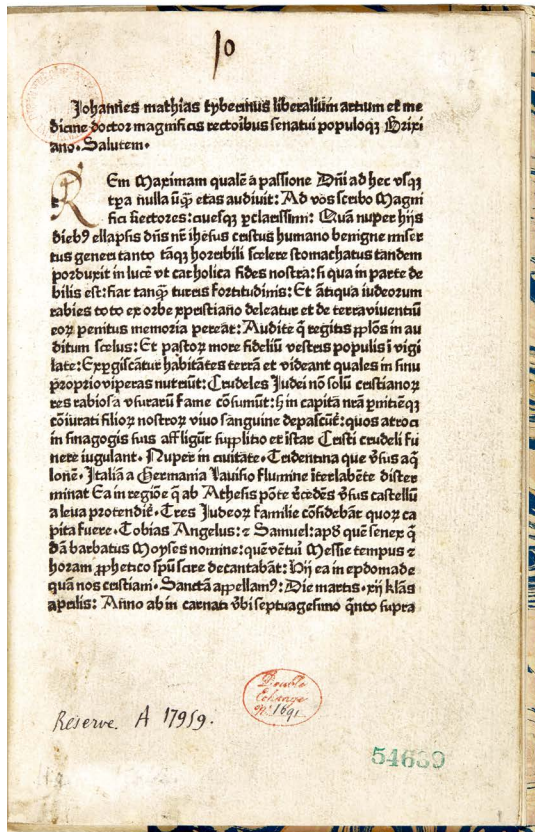 10
Johannes mathias tyberinus liberalium artium et me
dicine doctor magnificis rectoribus senatui populoqꝫ Brixi
ano. Salutem.
REm Maximam qualē a passione Dn̄i ad hec vsqꝫ
tp̄a nulla ūqꝫ etas audiuit: Ad vos scribo Magni
fici Rectores: ciuesqꝫ p̄clarissimi: Quā nuper hijs
diebꝰ ellapsis dn̄s nr̄ ihesus cristus humano benigne miser
tus generi tanto tāqꝫ horribili scelere stomachatus tandem
porduxit in lucē vt catholica fides nostra: si qua in parte de
bilis est: fiat tanqꝫ turris fortitudinis: Et ātiqua iudeorum
rabies toto ex orbe xp̄istiano deleatur et de terra viuentiū
eoꝝ penitus memoria pereat: Audite q̄ regitis pp̄los in au
ditum scelus: Et pastoꝝ more fideliū vestris populis ī vigi
late: Exꝑgiscātur habitātes terrā et videant quales in sinu
proprio viperas nutriūt: Crudeles Judei nō solū cristianoꝝ
res rabiosa vsuraꝝ fame cōsumūt: sꝫ in capita nr̄a ꝑnitiēqꝫ
cōiurati filioꝝ nostroꝝ viuo sanguine depascūt̄: quos atroci
in sinagogis suis affligūt supplitio et īstar Cristi crudeli fu
nere iugulant. Nuper in ciuitate. Tridentina que v̄sus aq̄
lonē. Italiā a Germania Lauisio flumine īterlabēte dister
minat Ea in regiōe q̄ ab Athesis pōte r̄cedēs v̄sus castellū
a leua protendit̄. Tres Judeoꝝ familie cōsidebāt quoꝝ ca
pita fuere. Tobias Angelus: ⁊ Samuel: apꝺ̄ quē senex q̄
dā barbatus Moyses nomine: quē vētuꝝ Messie tempus ⁊
horam ꝓphetico spū scire decantabāt: Hij ea in epdomade
quā nos cristiani. Sanctā appellamꝰ: Die martis. xij kl̄as
aprilis: Anno ab in carnati v̄bi septuagesimo q̄nto supra
Double
Echange
nº. 1691.
Réserve. A 17959.
54639